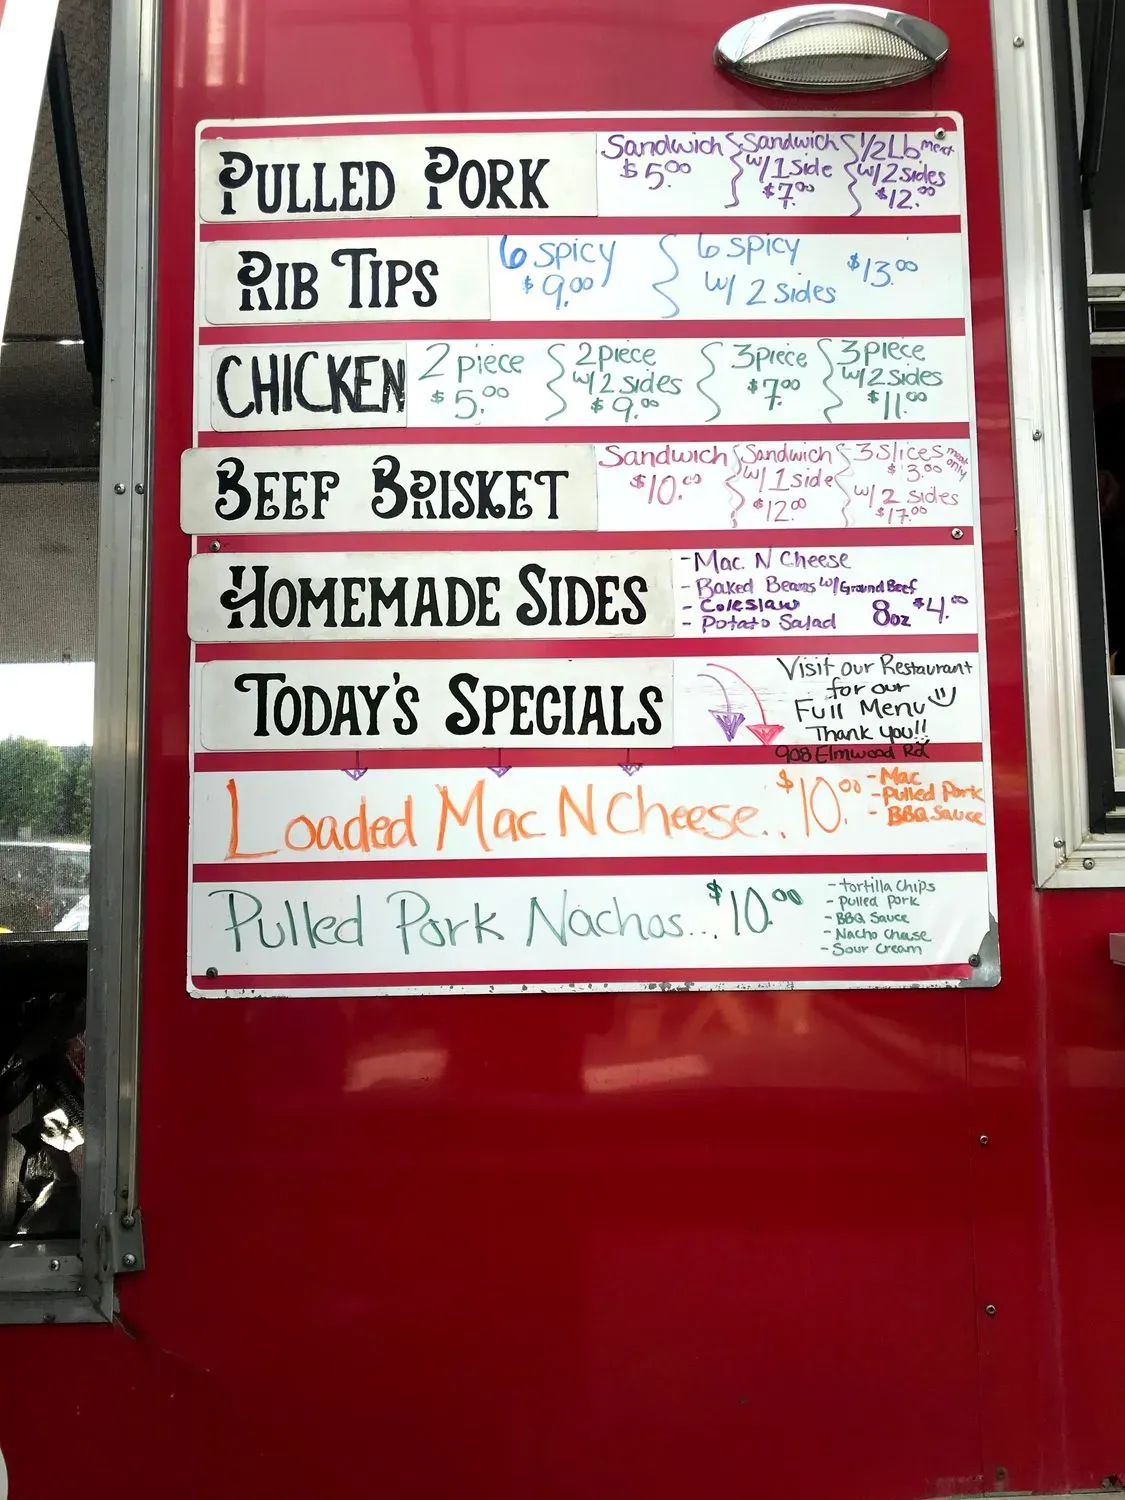 PULLED PORK
Sandwich
$5.00
Sandwich
w/1side
$7.00
1/2Lb meat
w/2sides
$12.00
RIB TIPS
6 spicy
$9.00
6 spicy
w/ 2 sides
$13.00
CHICKEN
2 piece
$5.00
2piece
w/2 sides
$9.00
3piece
$7.00
3piece
w/2sides
$11.00
BEEF BRISKET
Sandwich
$10.00
Sandwich
w/1side
$12.00
3 slices meat only
$3.00
w/ 2 sides
$17.00
HOMEMADE SIDES
- Mac N Cheese
- Baked Beans w/Ground Beef
- Coleslaw
- Potato Salad
8oz $4.00
TODAY'S SPECIALS
Visit our Restaurant
for our
Full Menu
Thank You!!
908 Elmwood Rd
Loaded Mac N Cheese.. $10.00
- Mac
- Pulled Pork
- BBQ Sauce
Pulled Pork Nachos... $10.00
- tortilla Chips
- Pulled Pork
- BBQ Sauce
- Nacho Chease
- Sour Cream